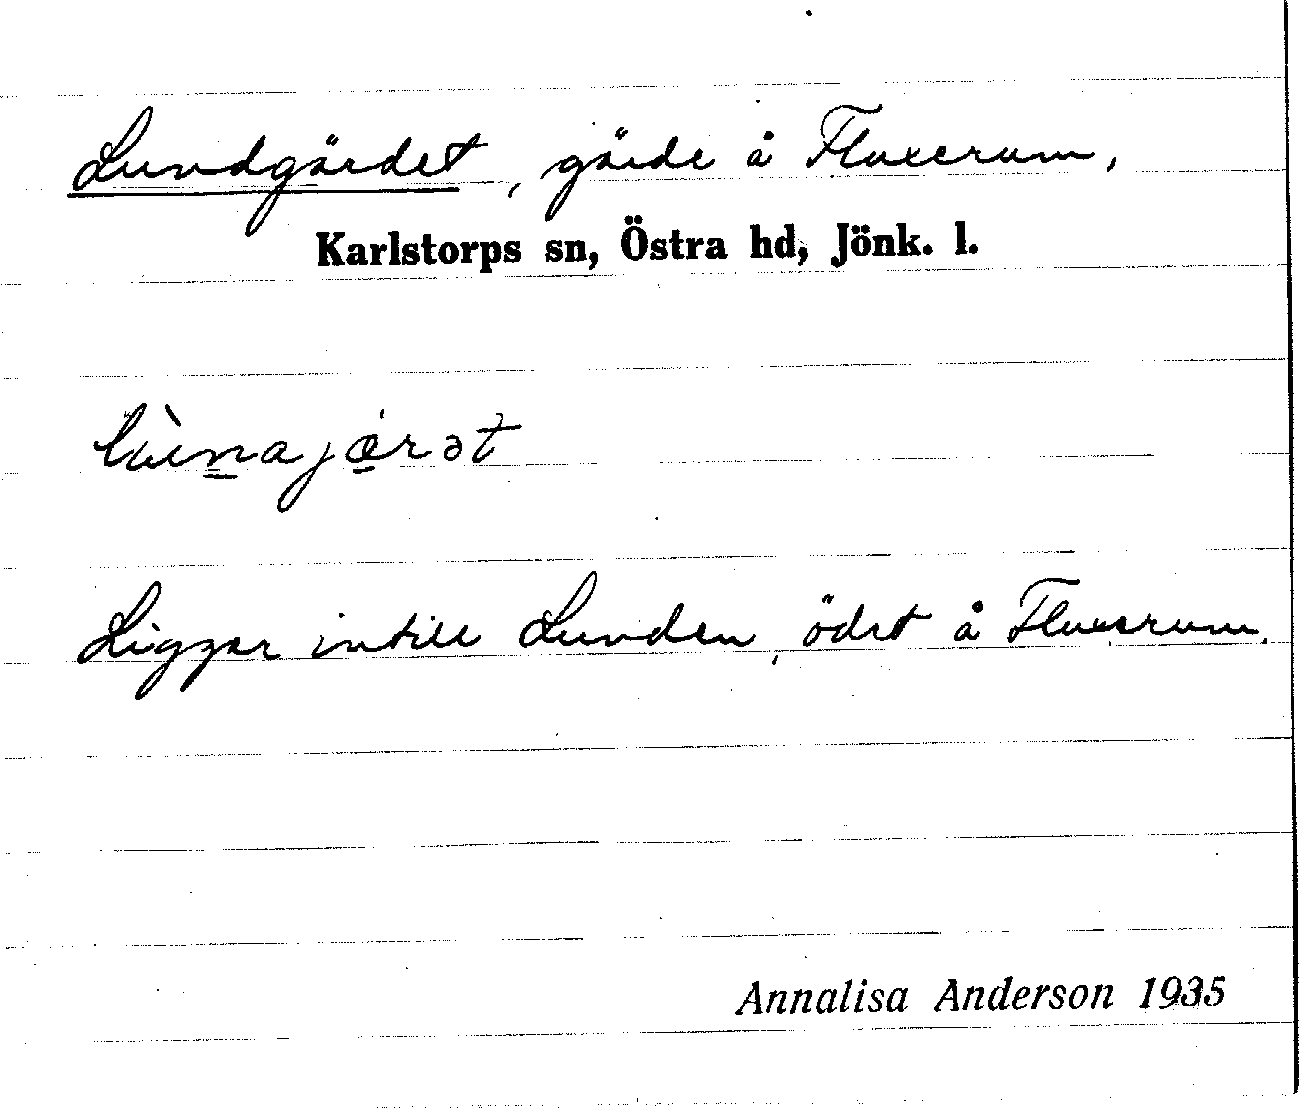 Lundgärdet, gärde å Fluxerum,
Karlstorps sn, Östra hd, Jönk. l.
Ligger intill Lunden, ödet å Fluxerum.
Annalisa Anderson 1935